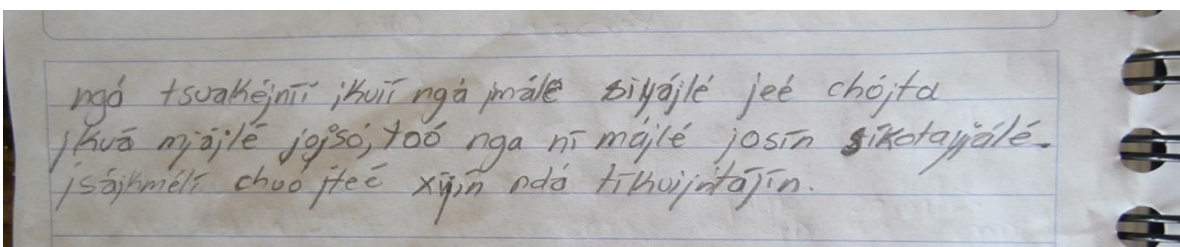 ngá tsuakéjnīī jkuīī ngá jmálé siyájlé jeé chójta
jkuā mjājlé jojsó, toó nga ni májlé josīn síkotayjálé.
jsājkmélī chuó jteé xījīn ndá tīkuijntájīn.